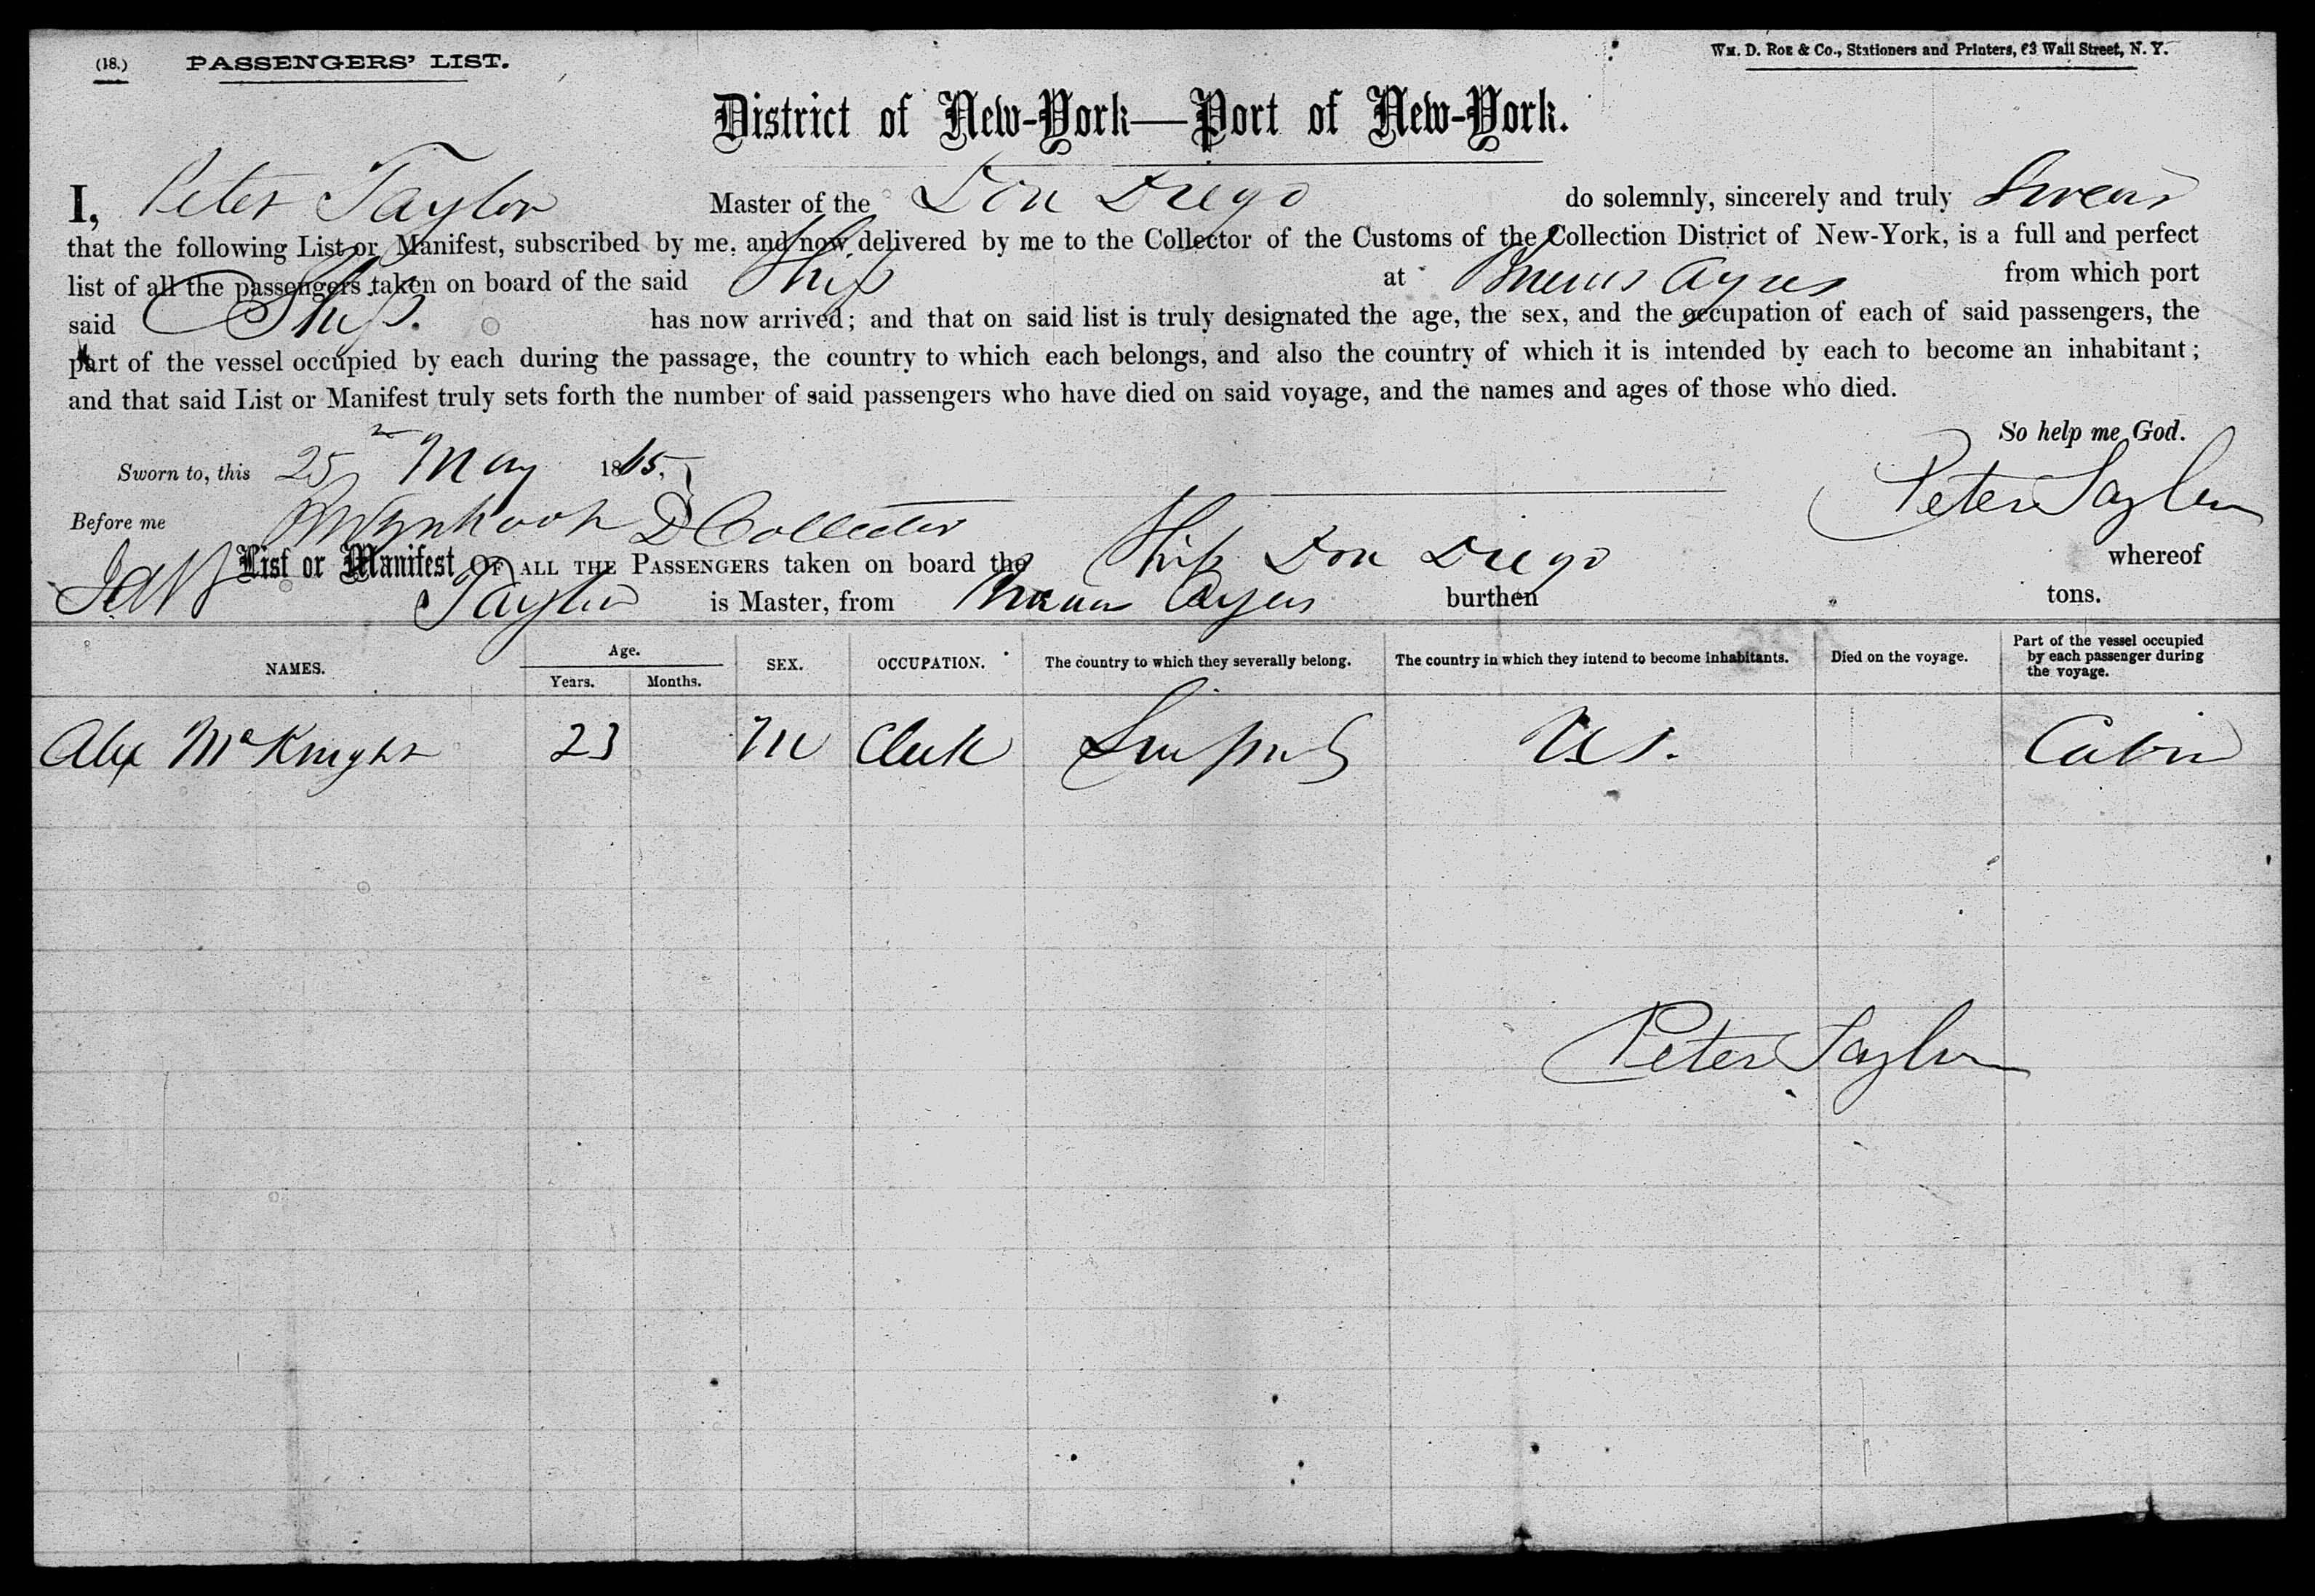 (18.) PASSENGERS' LIST. Wm. D. Roe & Co., Stationers and Printers, 63 Wall Street, N. Y.
District of New-York—Port of New-York.
I, Peter Taylor Master of the Don Diego do solemnly, sincerely and truly Swear
that the following List or Manifest, subscribed by me, and now delivered by me to the Collector of the Customs of the Collection District of New-York, is a full and perfect
list of all the passengers taken on board of the said Ship at Buenos Ayres from which port
said Ship. has now arrived; and that on said list is truly designated the age, the sex, and the occupation of each of said passengers, the
part of the vessel occupied by each during the passage, the country to which each belongs, and also the country of which it is intended by each to become an inhabitant;
and that said List or Manifest truly sets forth the number of said passengers who have died on said voyage, and the names and ages of those who died.
So help me God.
Sworn to, this 25 May 1865, Peter Taylor
Before me Wynkoop D Collector
List or Manifest OF ALL THE PASSENGERS taken on board the Ship Don Diego whereof
Taylor is Master, from Buenos Ayres burthen tons.
NAMES. Age. Years. Months. SEX. OCCUPATION. The country to which they severally belong. The country in which they intend to become inhabitants. Died on the voyage. Part of the vessel occupied by each passenger during the voyage.
Alex McKnight 23 M Clerk U.S. Cabin
Peter Taylor